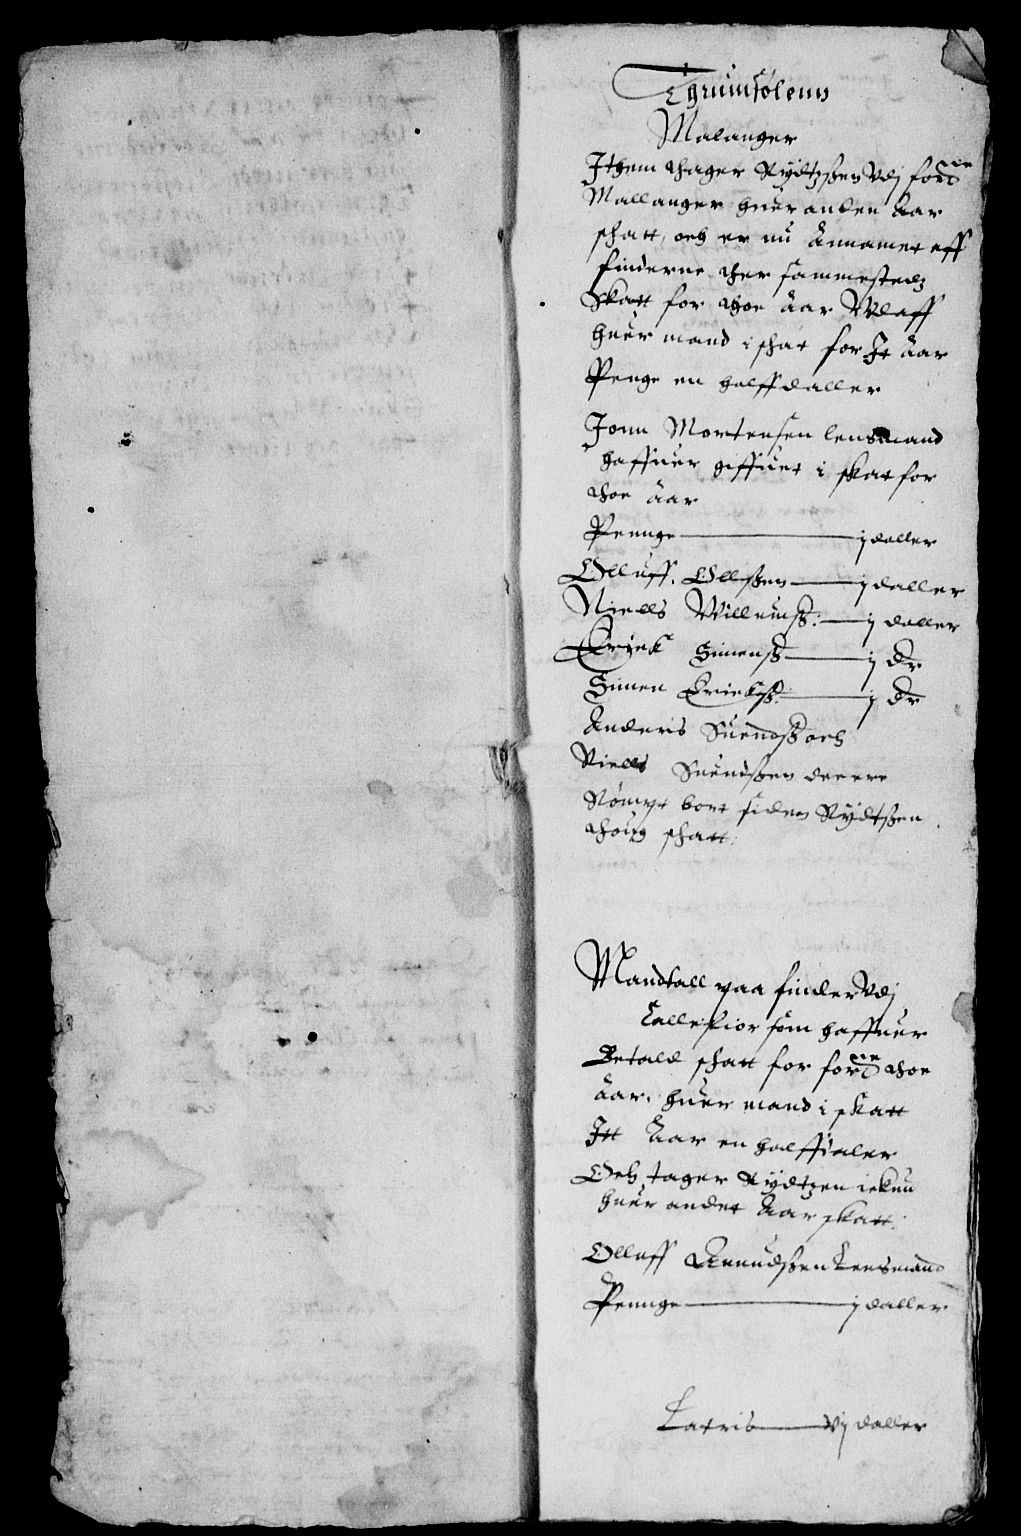 Thrumsølenn
Malanger
Ithem thager Rydtzßen vdj forne
Mallanger huer anden Aar
schatt, och er nu Annamet aff
finderne ther sammestedz
Skatt for thoe Aar Vdaff
huer mand i schat for It Aar
Penge en halff daller
Jonn Mortensen lensmand
haffuer giffuet i skat for
thoe Aar
Pennge — j daller
Olluff Ollßen — j daller
Niells Willumß: — j daller
Erick Simenß — j dr
Simen Erickß: — j dr
Anders Suendß och
Niells Suendßen deere
Rømpt bort siden Rydtßen
thoug schatt.
Mandtall paa finder vdj
Callefior som haffuer
Betald schatt for forne thoe
Aar. huer mand i skatt
Itt Aar en halff daler
Och tager Rydtzen ickun
huer andet Aar skatt.
Olluff Knudßen Lensmand
Pennge — j daller
Lateris — vj daller